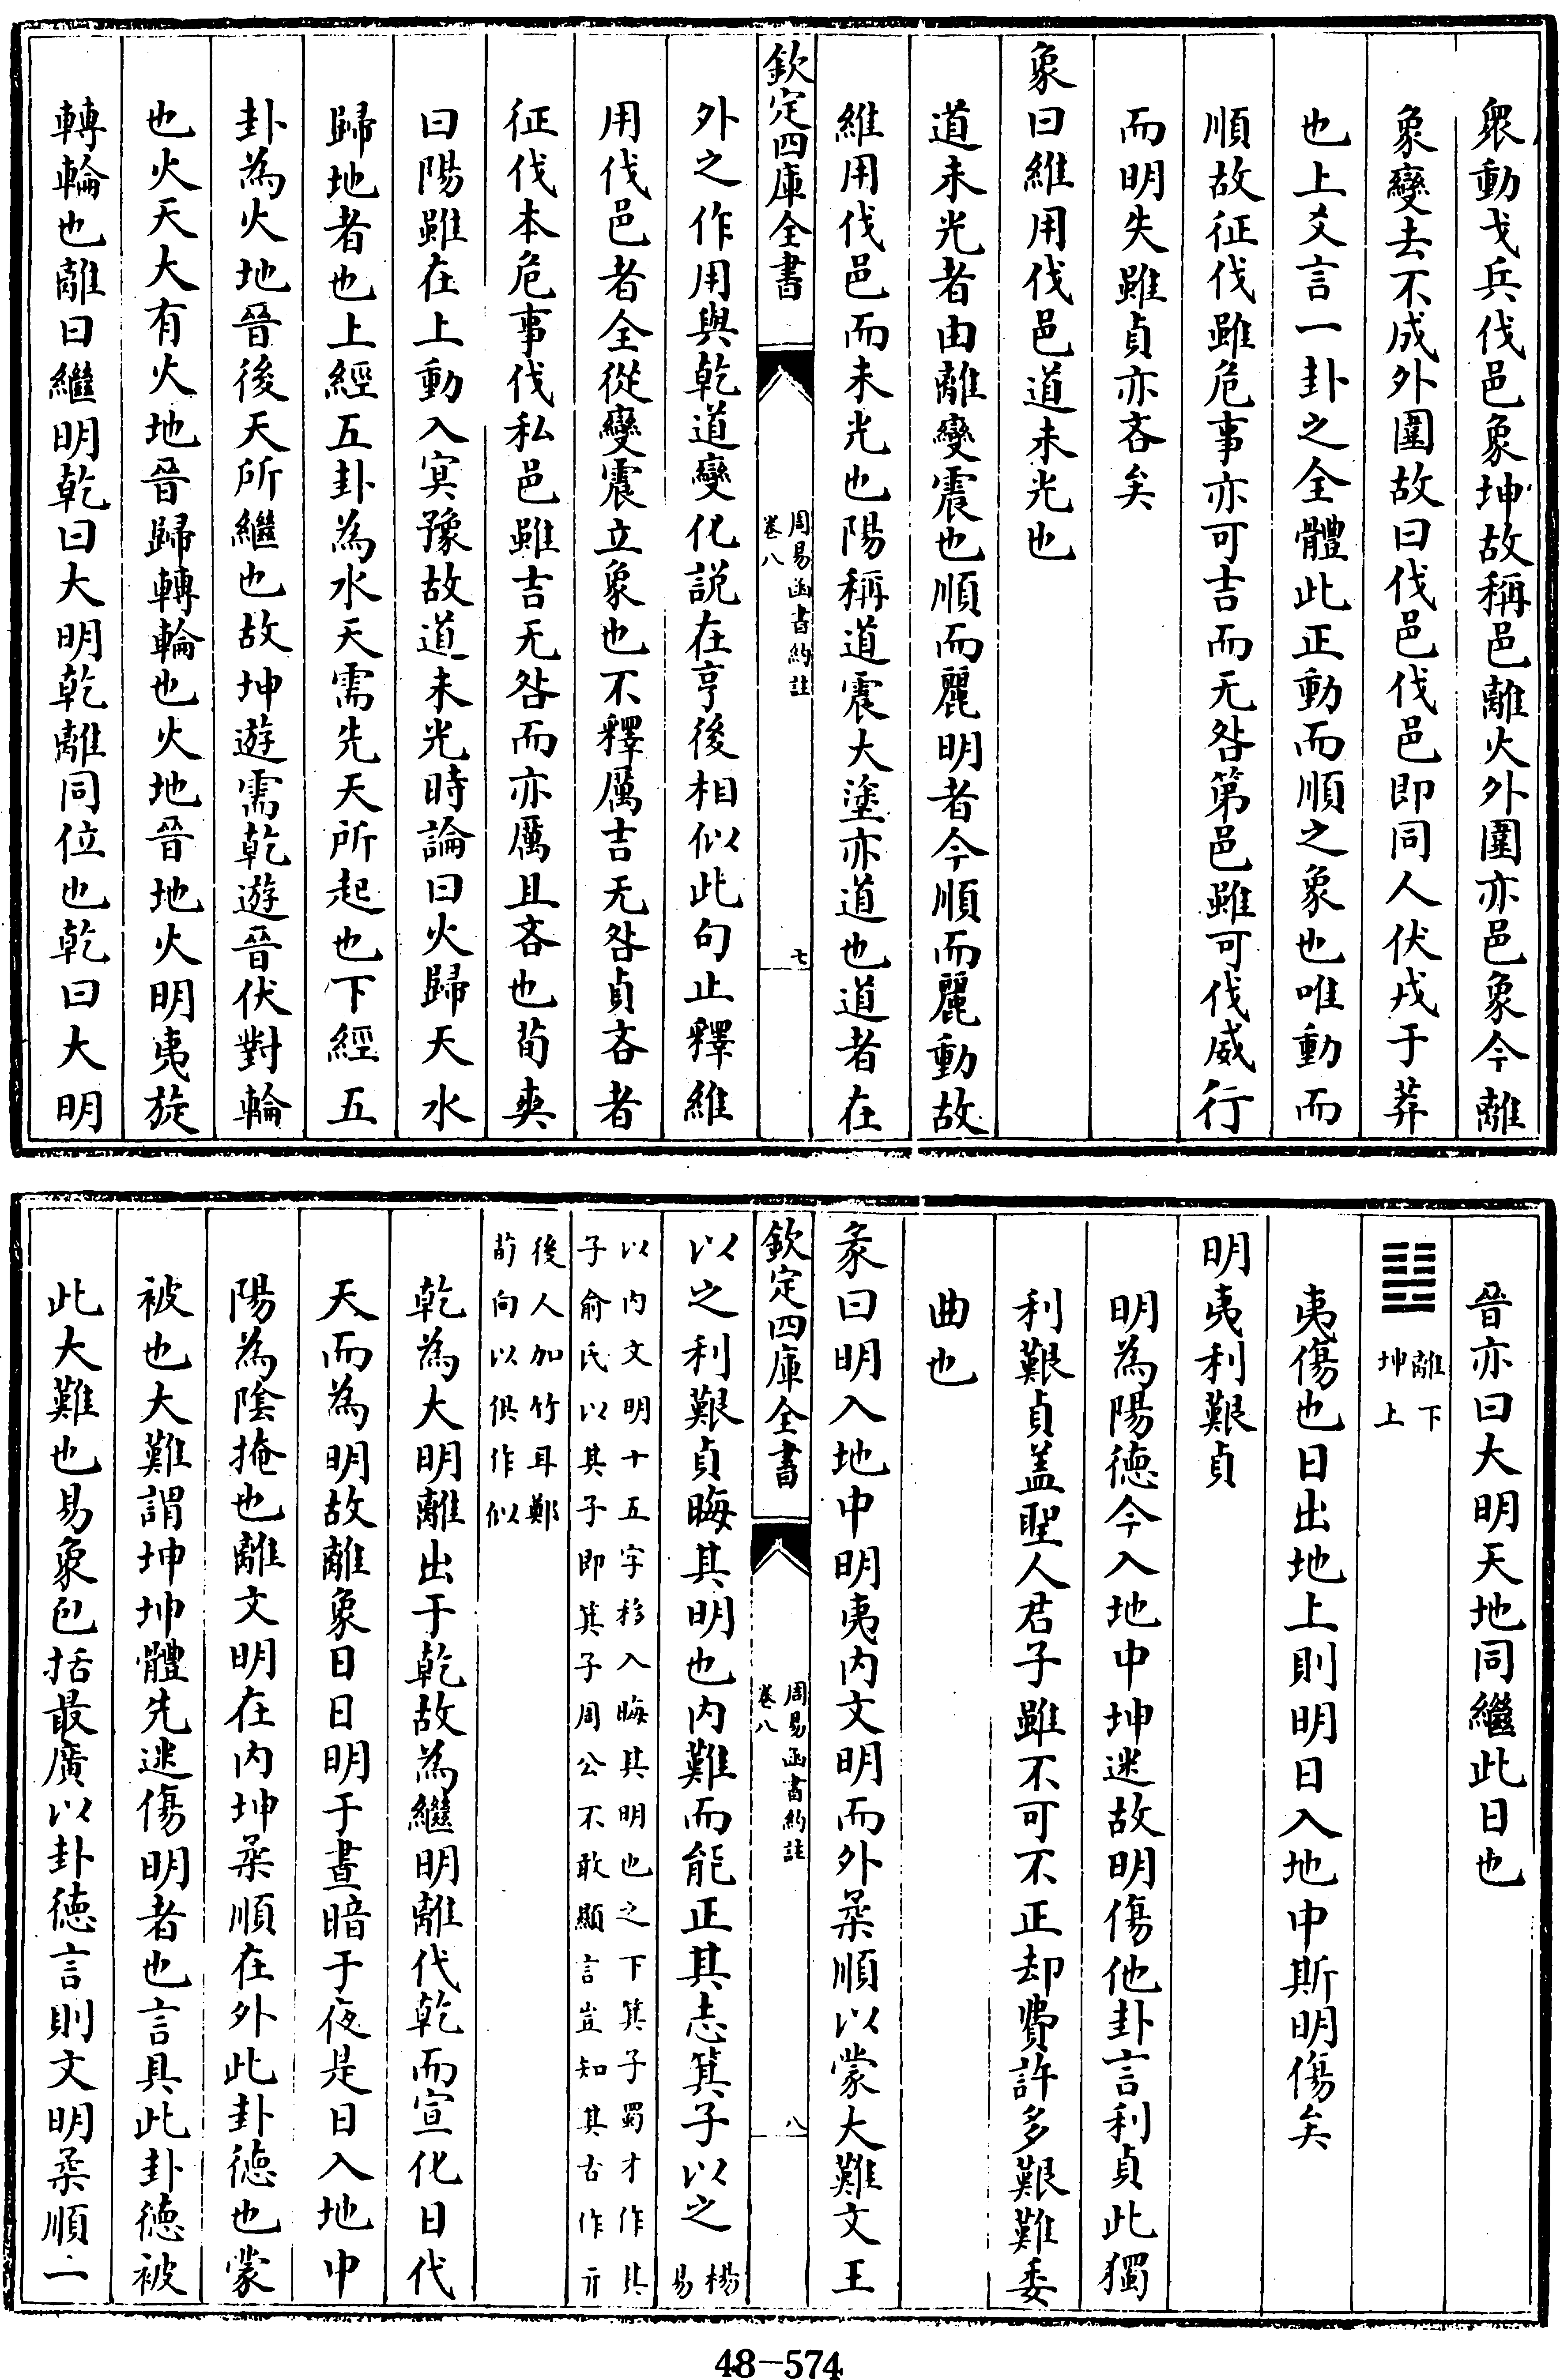 衆動戈兵伐邑象坤故稱邑離火外圍亦邑象今離
象變去不成外圍故曰伐邑伐邑即同人伏戎于莽
也上爻言一卦之全體此正動而順之象也唯動而
順故征伐雖危事亦可吉而无咎第邑雖可伐威行
而明失雖貞亦吝矣
象曰維用伐邑道未光也
道未光者由離變震也順而麗明者今順而麗動故
維用伐邑而未光也陽稱道震大塗亦道也道者在
欽定四庫全書
周易函書約註
卷八
七
外之作用與乾道變化說在亨後相似此句止釋維
用伐邑者全從變震立象也不釋厲吉无咎貞吝者
征伐本危事伐私邑雖吉无咎而亦厲且吝也荀爽
曰陽雖在上動入冥豫故道未光時論曰火歸天水
歸地者也上經五卦為水天需先天所起也下經五
卦為火地晉後天所繼也故坤遊需乾遊晉伏對輪
也火天大有火地晉歸轉輪也火地晉地火明夷旋
轉輪也離曰繼明乾曰大明乾離同位也乾曰大明
晉亦曰大明天地同繼此日也
䷣
離下
坤上
夷傷也日出地上則明日入地中斯明傷矣
明夷利艱貞
明為陽德今入地中坤迷故明傷他卦言利貞此獨
利艱貞盖聖人君子雖不可不正却費許多艱難委
曲也
彖曰明入地中明夷内文明而外柔順以蒙大難文王
欽定四庫全書
周易函書約註
卷八
八
以之利艱貞晦其明也内難而能正其志箕子以之
楊
易
以内文明十五字移入晦其明也之下箕子蜀才作其
子俞氏以其子即箕子周公不敢顯言豈知其古作亓
後人加竹耳鄭
荀向以俱作似
乾為大明離出于乾故為繼明離代乾而宣化日代
天而為明故離象日日明于晝暗于夜是日入地中
陽為陰掩也離文明在内坤柔順在外此卦德也蒙
被也大難謂坤坤體先迷傷明者也言具此卦德被
此大難也易象包括最廣以卦德言則文明柔順二
48-574